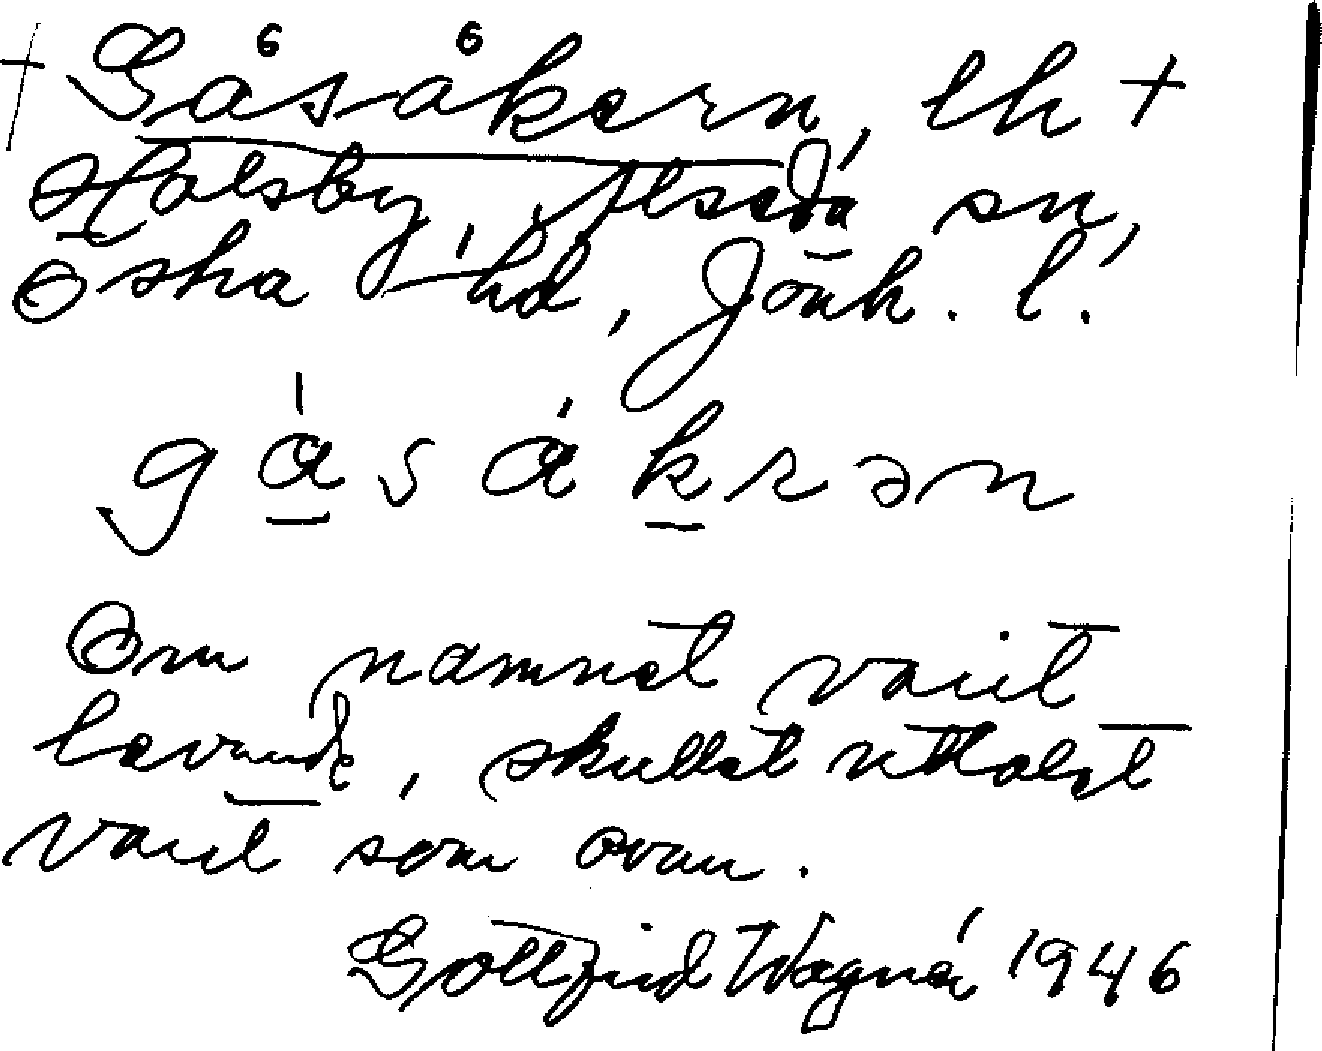 † Gåsåkern, lh +
Holsby, Alseda sn,
Östra hd, Jönk. l.
gåsåkrən
Om namnet varit
levande, skulle uttalet
varit som ovan.
Gottfrid Wagnér 1946